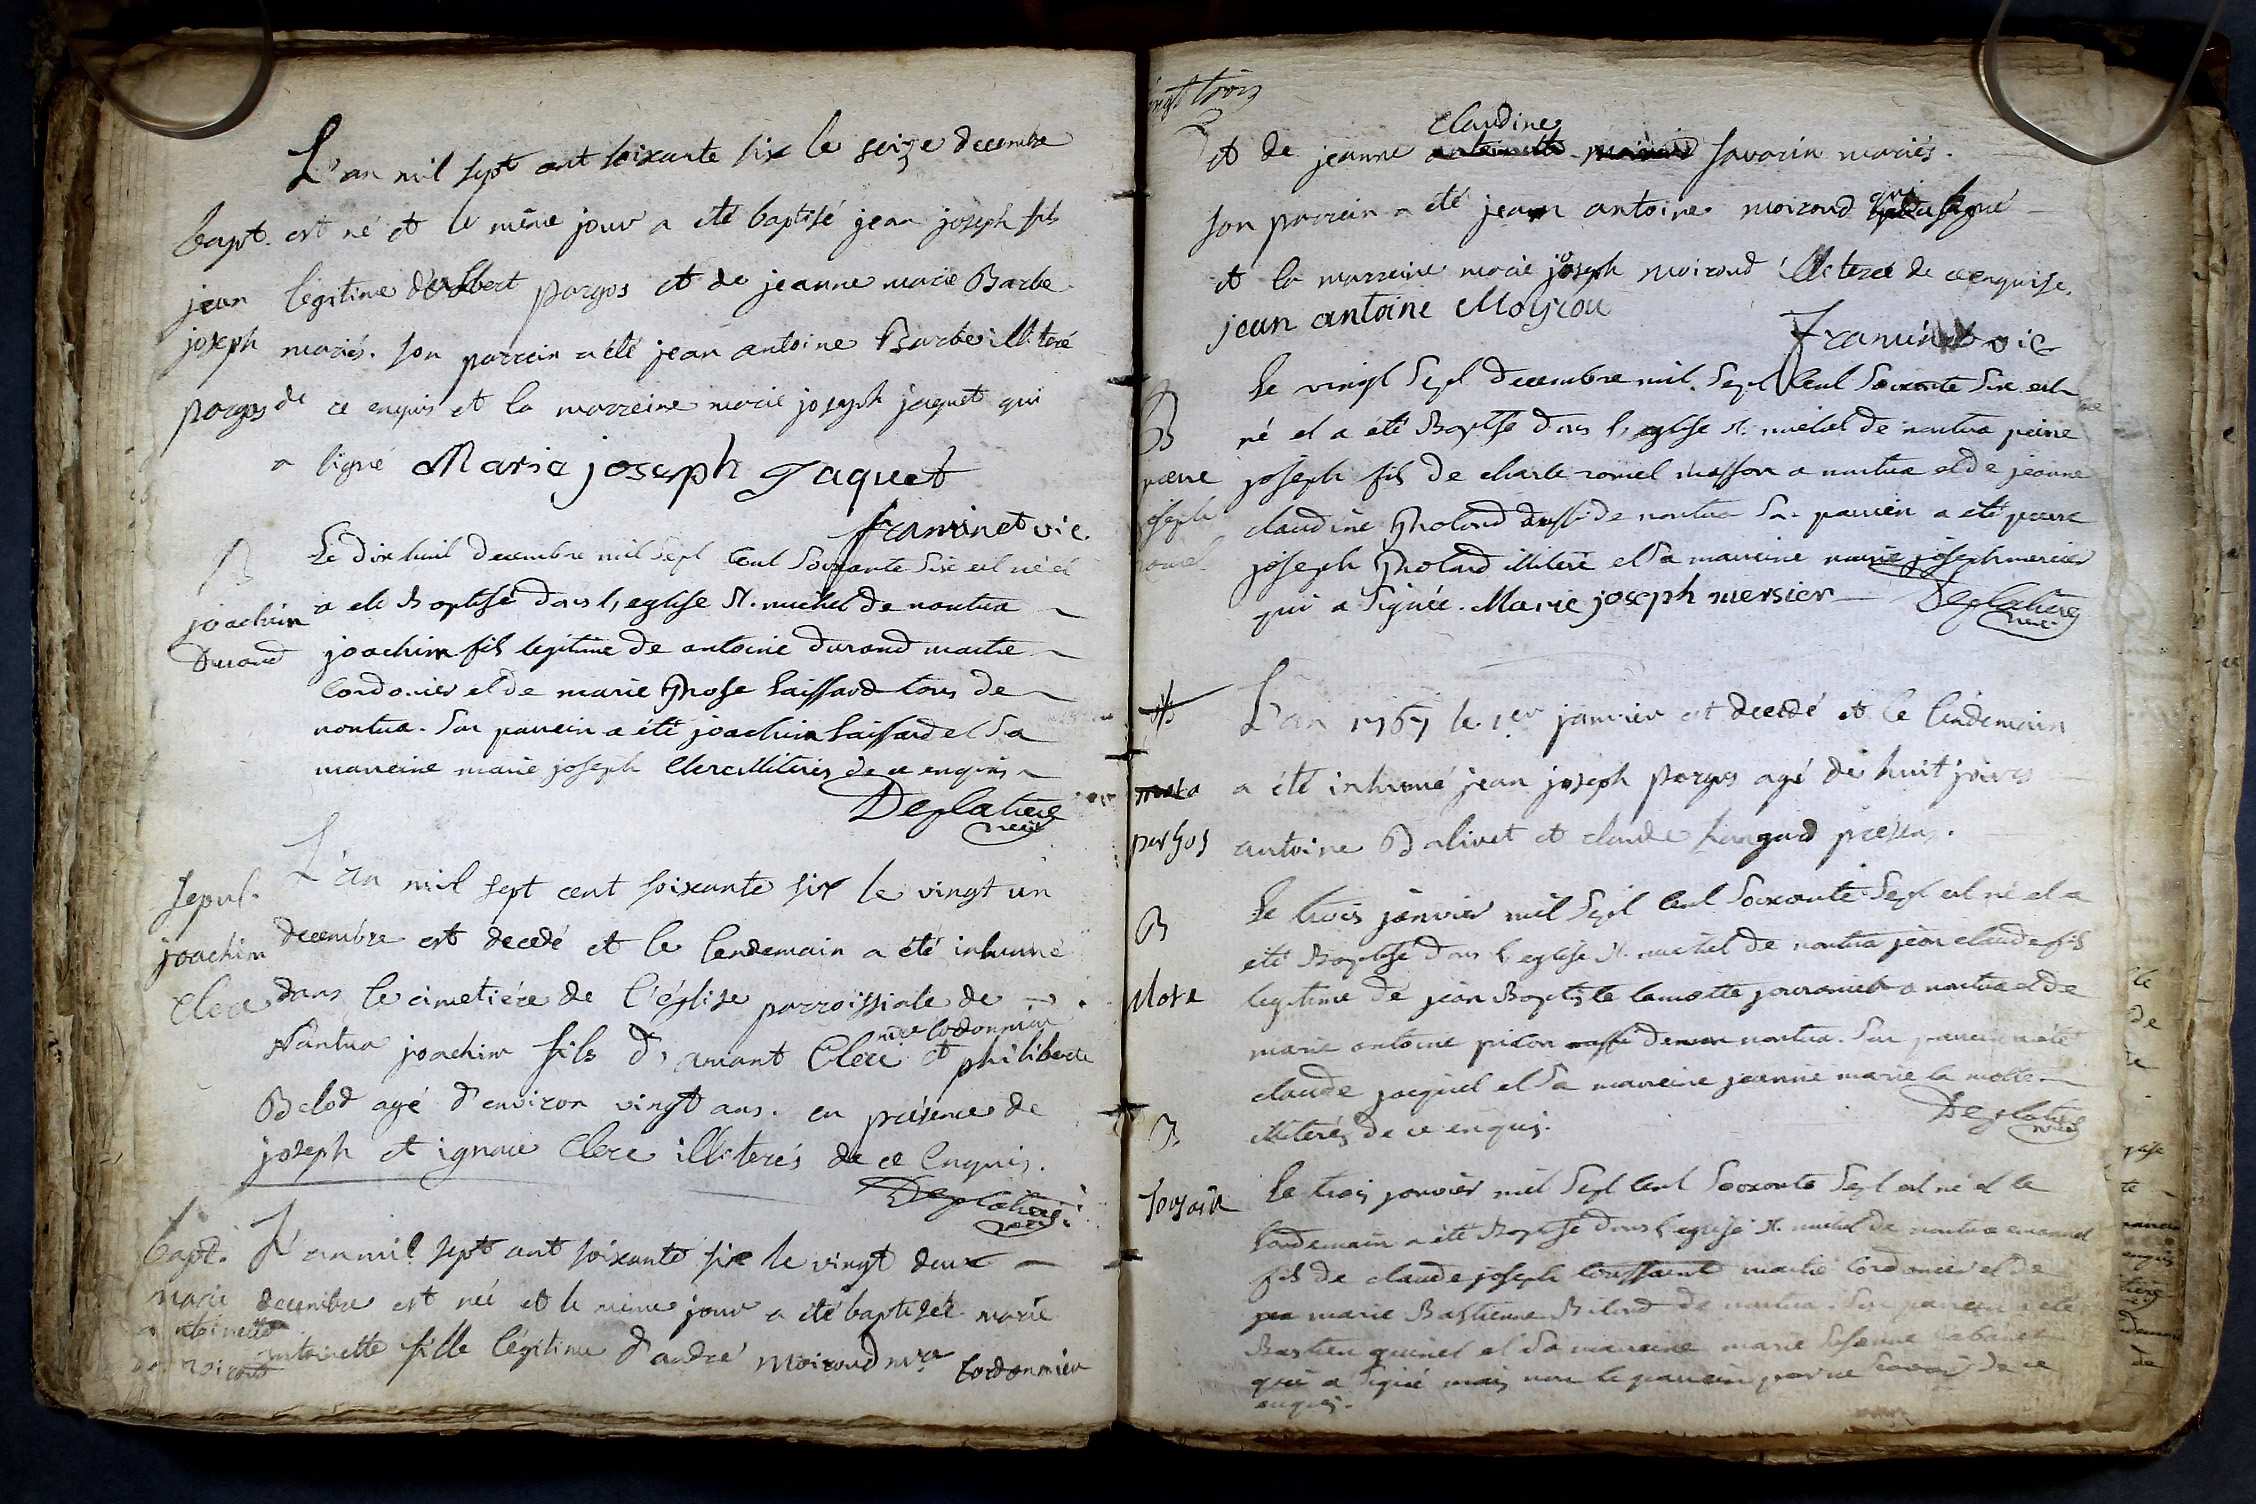 L'an mil sept cent soixante six le seize decembre
bapt. est né et le même jour a été baptisé jean joseph fils
jean légitime d'albert pargos et de jeanne marie Barbe
joseph mariés. son parrein a été jean antoine Barbe illiteré
pargos de ce enquis et la marreine marie joseph jaquet qui
a signé Marie joseph Jaquet
framinet vic.
B Le dix huit decembre mil sept cent soixante six est né et
joachim a ete Baptisé dans l'eglise St. michel de nantua
Durand joachim fils legitime de antoine durand maitre
Cordonier et de marie Rose saissard tous de
nantua. Son parrein a été joachim saissard et sa
marreine marie joseph Clerc illiterés de ce enquis
Deplatiere
L'an mil sept cent soixante six le vingt un
sepul. decembre est decedé et le lendemain a été inhumé
joachim dans le cimetiére de l'église parroissiale de
Clerc Nantua joachim fils d'amant Clerc mtre Cordonnier et philiberte
Belod agé d'environ vingt ans. en présence de
joseph et ignace Clerc illiterés de ce Enquis.
Deplatiere
bapt. L'an mil sept cent soixante six le vingt deux
marie decembre est née et le même jour a été baptisée marie
antoinette antoinette fille légitime d'andré Moirond mtre Cordonnier
moirond
vingt trois
claudine
et de jeanne savarin mariés.
son parrein a été jean antoine moirond qui a signé
et la marreine marie joseph moirond illiterée de ce enquise.
jean antoine Moyrou
framinet vic
Le vingt sept decembre mil sept cent soixante six est
B né et a été Baptisé dans l'eglise St. michel de nantua pierre
pierre joseph fils de charle romel masson a nantua et de jeanne
joseph claudine Roland aussi de nantua son parrein a été pierre
romel joseph Roland illiteré et sa marreine marie joseph mercier
qui a signée. Marie joseph mersier Deplatiere
L'an 1767 le 1er janvier est decedé et le lendemain
a été inhumé jean joseph pargos agé de huit jours
pargos antoine Balivet et claude présens.
B Le trois janvier mil sept cent soixante sept est né et a
été Baptisé dans l'eglise St. michel de nantua jean claude fils
legitime de jean Baptiste lamotte journanier a nantua et de
marie antoine picon nantua. Son parrein a été
claude jacquet et sa marreine jeanne marie la motte
illiterés de ce enquis. Deplatiere
B Le trois janvier mil sept cent soixante sept est né et le
landemain a été Baptisé dans l'eglise St. michel de nantua
fils de claude joseph toussaint maitre Cordonier et de
marie Bastienne de nantua. Son parrein a été
Bastien quinet et sa marreine marie
qui a signé mais non le parrein pour ne savoir de ce
enquis.